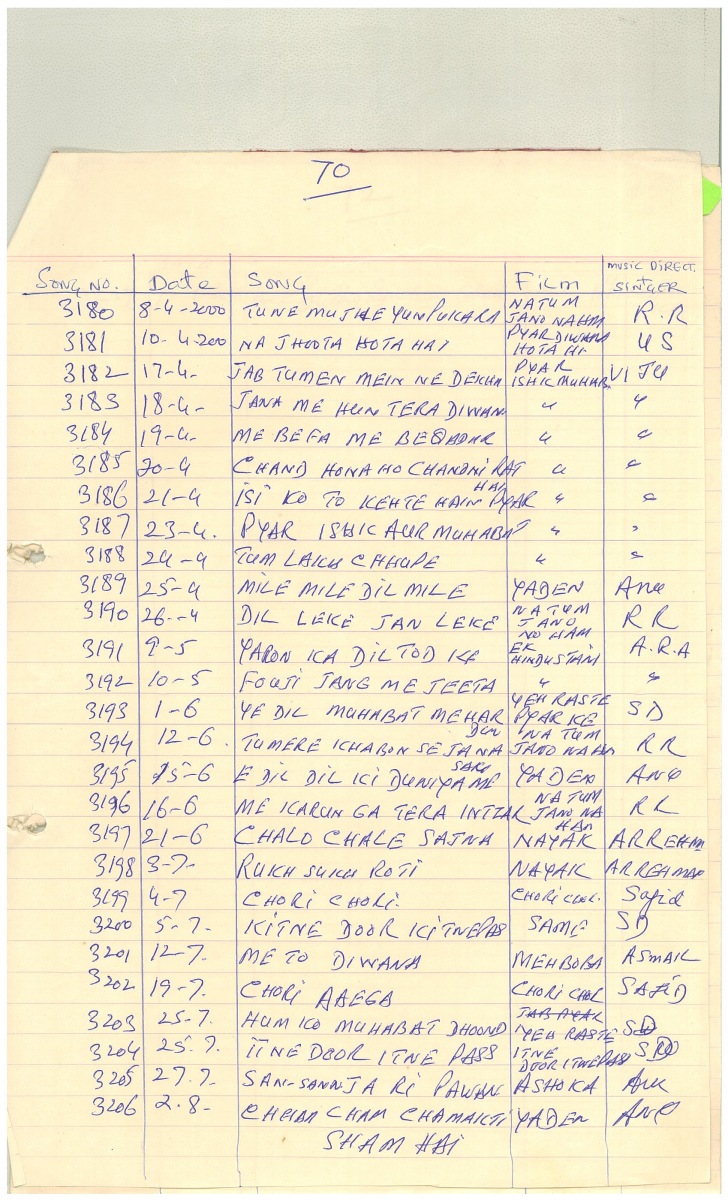 TO
SONG NO. Date SONG Film MUSIC DIRECT. SINGER
3180 8-4-2000 TUNE MUJHE YUN PUKARA NA TUM JANO NA HM R.R
3181 10-4-200 NA JHOOTA HOTA HAI PYAR DIWANA HOTA HI US
3182 17-4- JAB TUMEN MEIN NE DEKHA PYAR ISHIK MUHAB VIJU
3183 18-4- JANA ME HUN TERA DIWAN " "
3184 19-4- ME BEFA ME BEQADUR " "
3185 20-4 CHAND HONA HO CHANDNI RAT HAI " "
3186 21-4 ISI KO TO KEHTE HAIN PYAR " "
3187 23-4. PYAR ISHIK AUR MUHABAT " "
3188 24-4 TUM LAKH CHHUPE " "
3189 25-4 MILE MILE DIL MILE YADEN ANU
3190 26-4 DIL LEKE JAN LEKE NA TUM JANO NO HAM RR
3191 9-5 YARON KA DIL TOD KE EK HINDUSTANI A.R.A
3192 10-5 FOUJI JANG ME JEETA " "
3193 1-6 YE DIL MUHABAT ME HAR DUN YEH RASTE PYAR KE SD
3194 12-6. TUMERE KHABON SE JANA NA TUM JANO NA HAM RR
3195 15-6 E DIL DIL KI DUNIYA ME SARI YADEN ANU
3196 16-6 ME KARUN GA TERA INTZAR NA TUM JANO NA HAM RR
3197 21-6 CHALO CHALE SAJNA NAYAK ARREHEM
3198 3-7- RUKH SUKH ROTI NAYAK ARREHMAN
3199 4-7 CHORI CHORI. CHORI CHOR. Sajid
3200 5-7. KITNE DOOR KITNE PAS SAME SD
3201 12-7. ME TO DIWANA MEHBOBA ASMAIL
3202 19-7. CHORI AAEGA CHORI CHOR SAJID
3203 25-7. HUM KO MUHABAT DHOOND YEH RASTE SD
3204 25.7. ITNE DOOR ITNE PASS ITNE DOOR ITNE PAS SD
3205 27.7. SAN-SANN JA RI PAWAN ASHOKA ANU
3206 2.8- CHHAM CHAM CHAMAKTI YADEN ANU
SHAM HAI